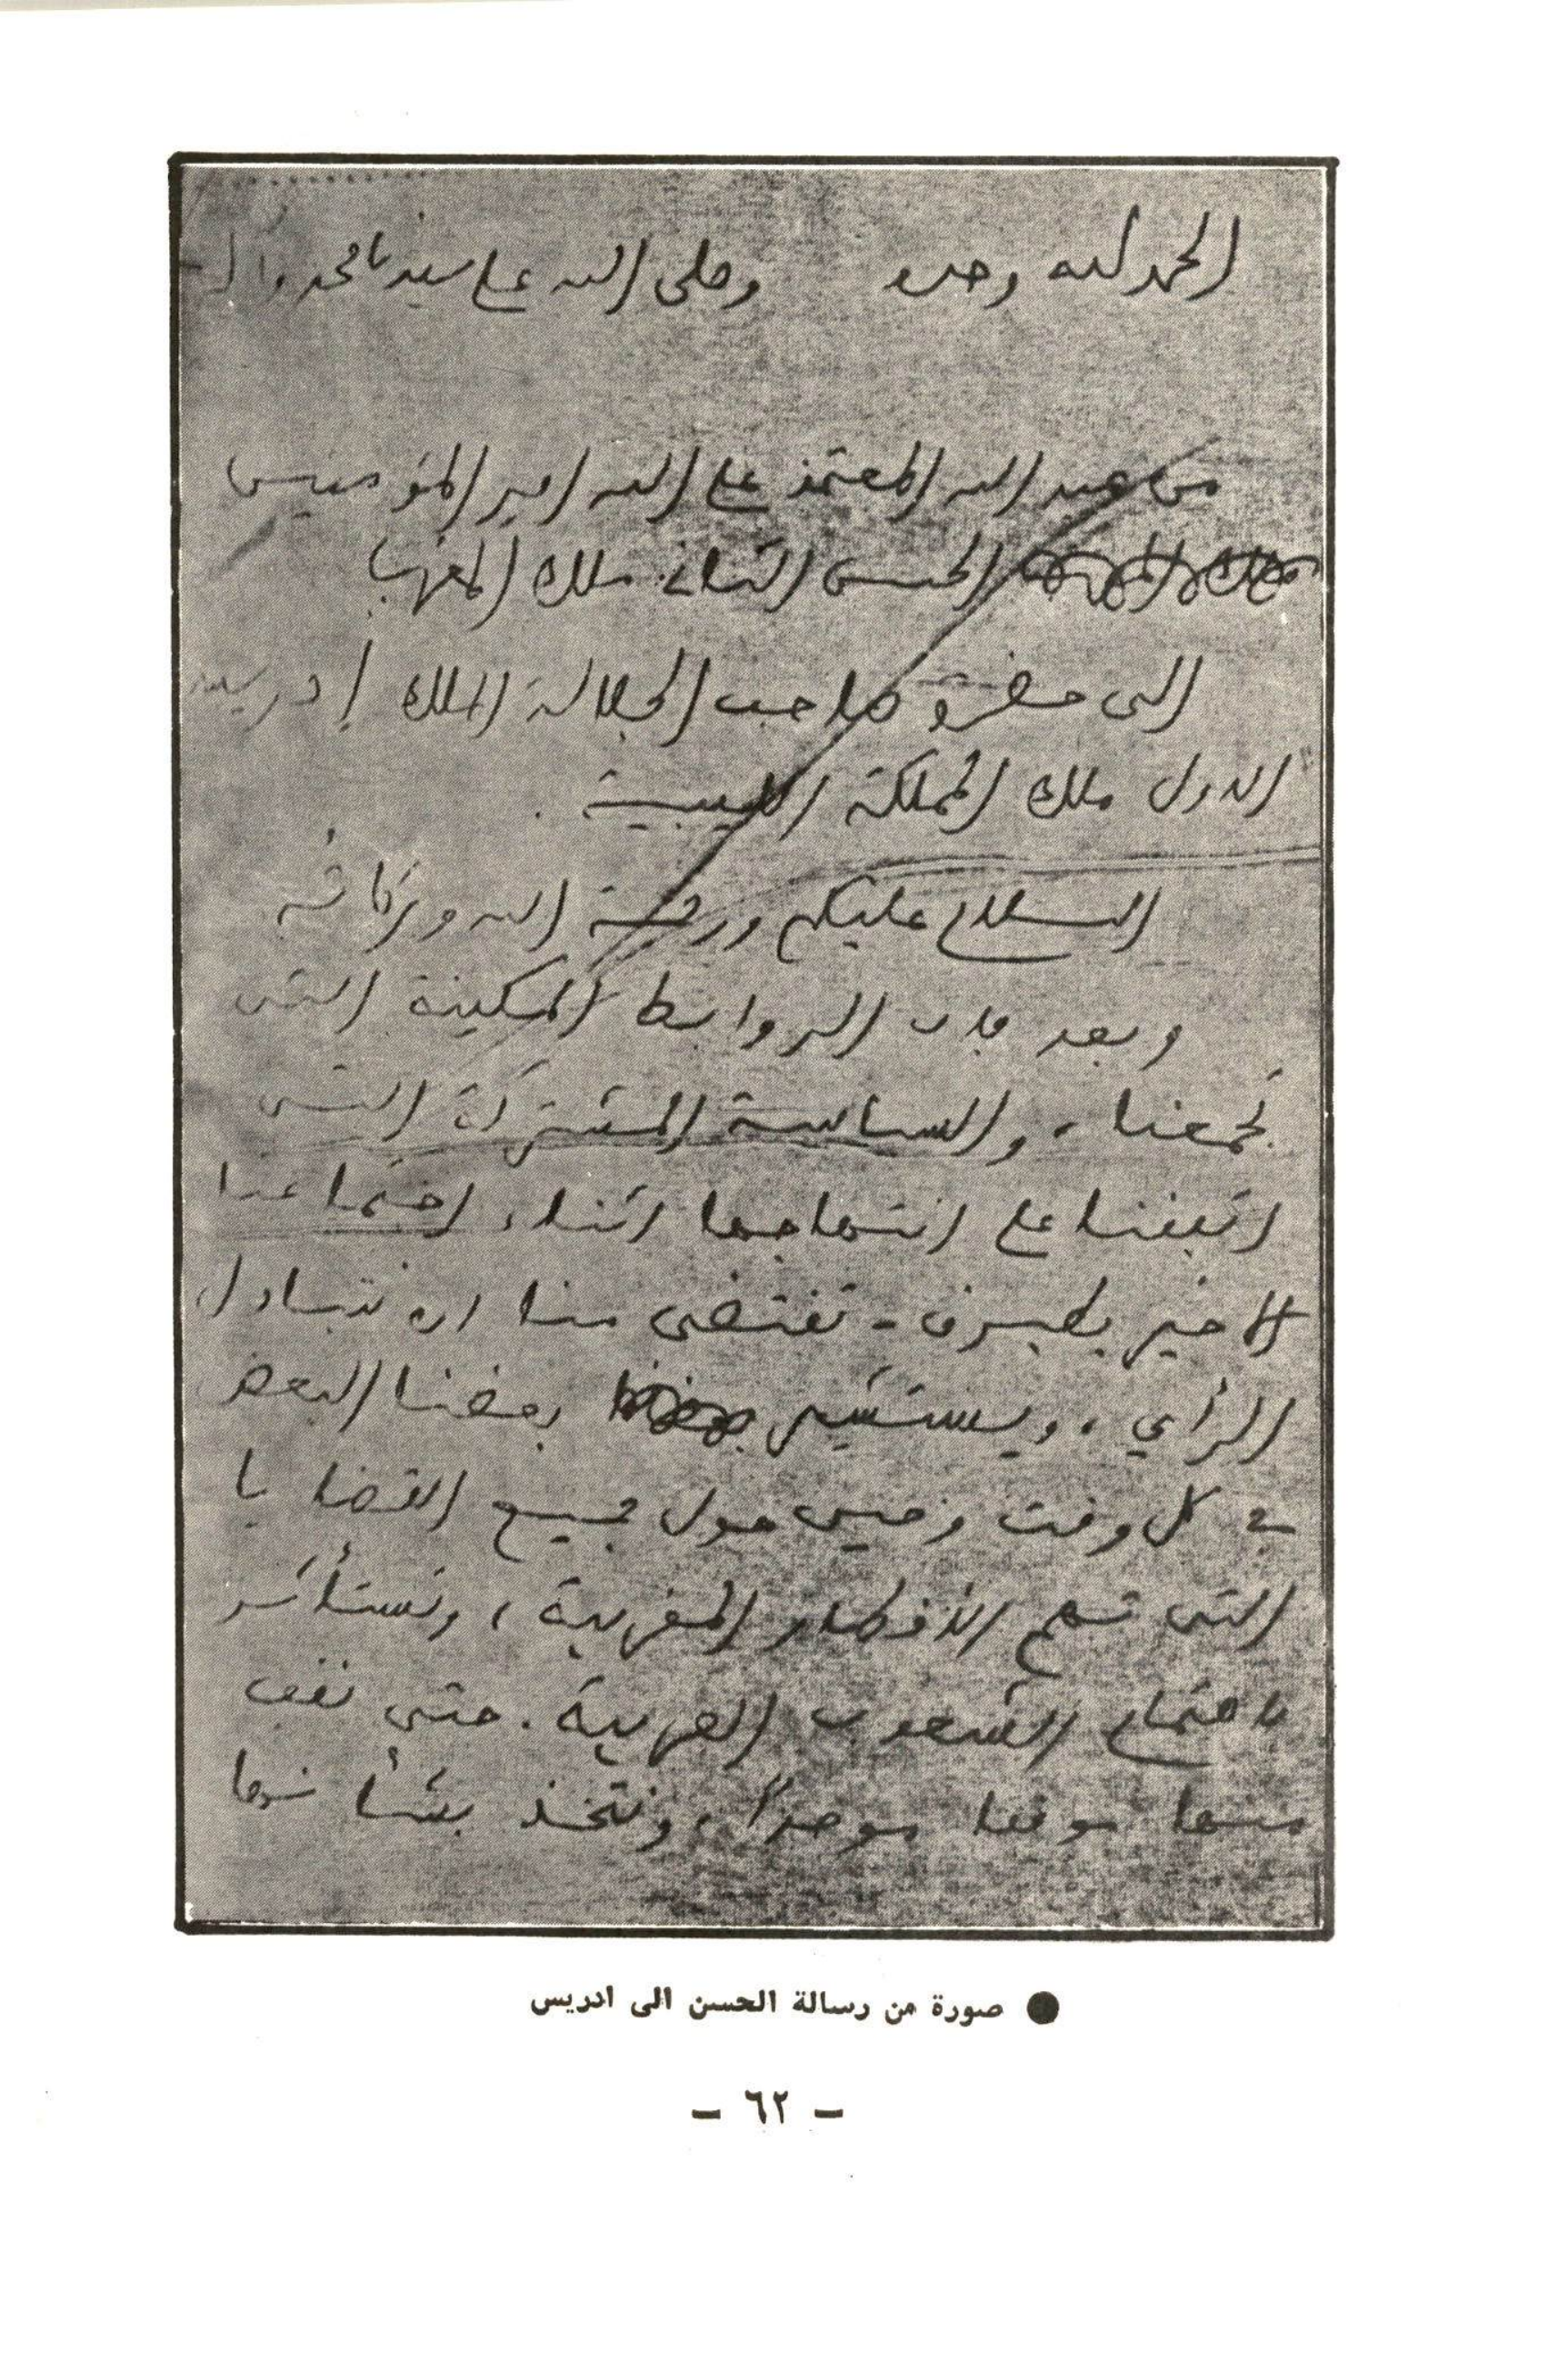 الحمد لله وحده وصلى الله على سيدنا محمد وآل
من عبد الله المعتمد على الله امير المؤمنين
الحسن الثاني ملك المغرب
الى حضرة صاحب الجلالة الملك إدريس
الاول ملك المملكة الليبية .
السلام عليكم ورحمة الله وبركاته
وبعد فان الروابط المكينة التي
تجمعنا ، والسياسة المشتركة التي
اتفقنا على انتهاجها اثناء اجتماعنا
الاخير بطبرق - تقتضي منا ان نتبادل
الرأي ، ويستشير بعضنا البعض
في كل وقت وحين حول جميع القضايا
التي تهم الأقطار المغربية ، وتستأثر
باهتمام الشعوب العربية . حتى نقف
منها موقفا موحداً ، ونتخذ بشأنها
● صورة من رسالة الحسن الى ادريس
– ٦٢ –